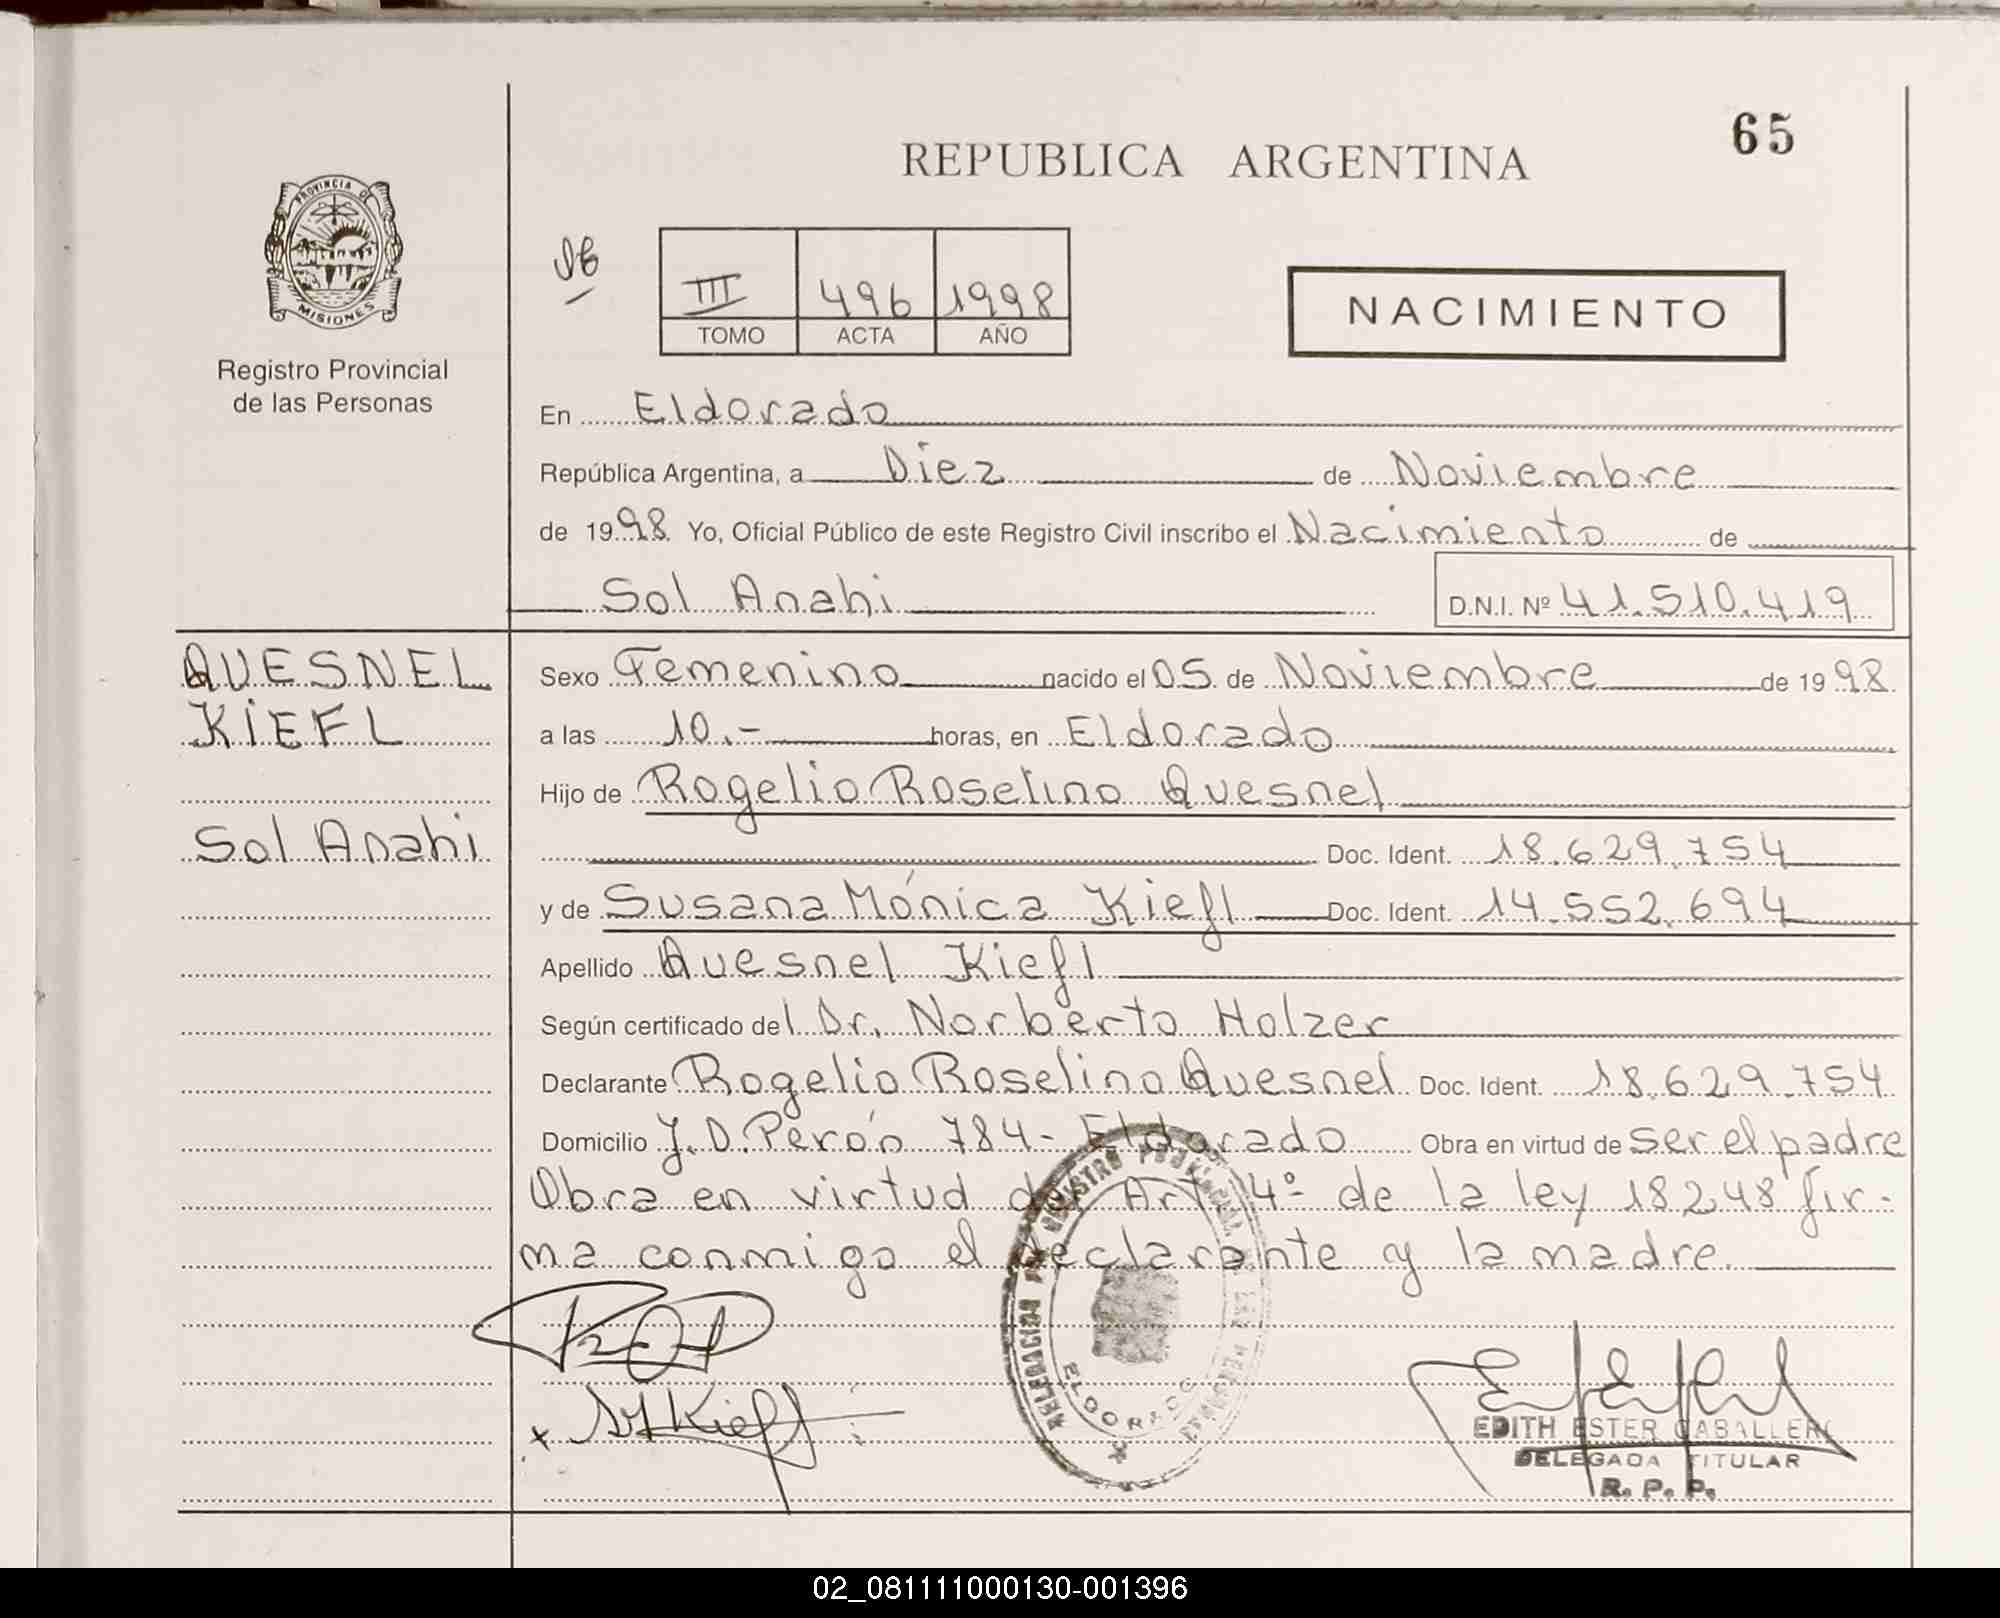 65
REPUBLICA ARGENTINA
PROVINCIA DE
MISIONES
Registro Provincial
de las Personas
III 496 1998
TOMO ACTA AÑO
NACIMIENTO
En Eldorado
República Argentina, a Diez de Noviembre
de 1998 Yo, Oficial Público de este Registro Civil inscribo el Nacimiento de
Sol Anahi D.N.I. Nº 41.510.419
QUESNEL
KIEFL
Sol Anahi
Sexo Femenino nacido el 05 de Noviembre de 1998
a las 10.- horas, en Eldorado
Hijo de Rogelio Roselino Quesnel
Doc. Ident. 18.629.754
y de Susana Mónica Kiefl Doc. Ident. 14.552.694
Apellido Quesnel Kiefl
Según certificado del Dr. Norberto Holzer
Declarante Rogelio Roselino Quesnel Doc. Ident. 18.629.754
Domicilio J.D. Perón 784- Eldorado Obra en virtud de ser el padre
Obra en virtud del Art 4º de la ley 18248 fir-
ma conmigo el declarante y la madre.
ELDORADO
Kiefl
EDITH ESTER CABALLERO
DELEGADA TITULAR
R. P. P.
02_081111000130-001396